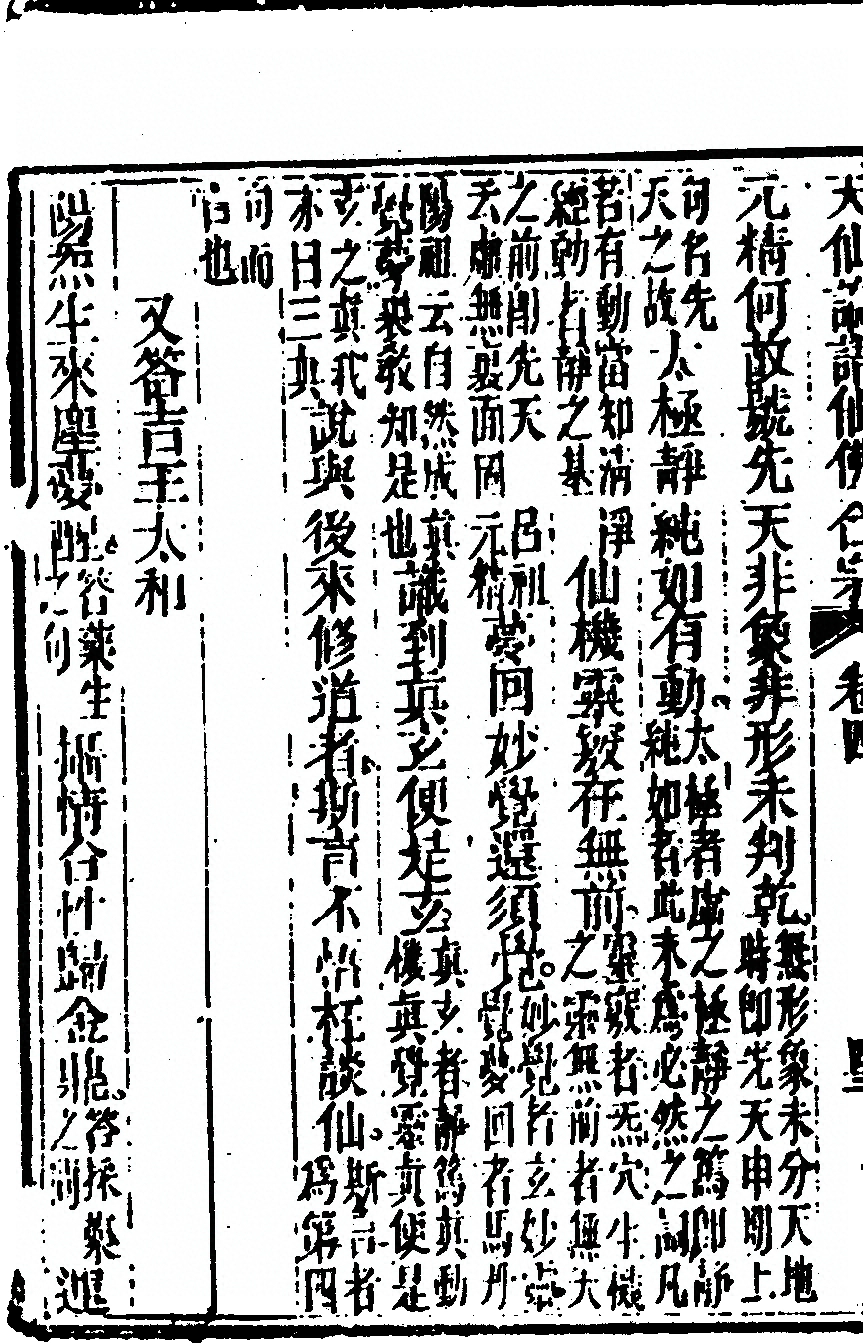 仙論語仙佛合宗 卷四
元精何故號先天非象非形未判乾無形象未分天地時即先天申明上
句名先天之故太極靜純如有動太極者虛之極靜之篤即靜純如者此未為必然之詞凡
若有動當知清淨經動者靜之基仙機靈竅在無前靈竅者炁穴生機之靈無前者無大
之前即先天呂祖云虛無裏面固元精夢回妙覺還須覺妙覺者玄妙靈覺夢回者馬丹
陽祖云自然成真覺夢教知是也識到真玄便是玄真玄者靜篤真動機真覺靈真便是
玄之真我亦曰三真說與後來修道者斯言不悋枉談仙斯言者為第四
句而言也
又答吉王太和
陽炁生來塵夢醒答藥生之句攝情合性歸金鼎答採藥進之